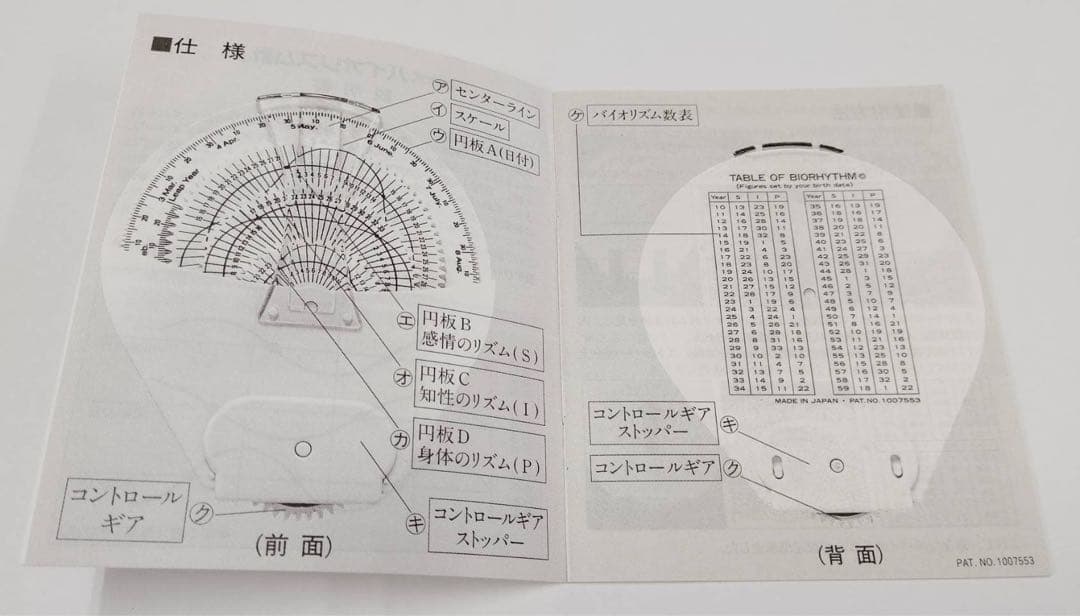 ■仕 様
㋐ センターライン
㋑ スケール
㋒ 円板A(日付)
3 Mar.
Leap Year
4 Apr.
5 May.
6 June.
7 July
8 Aug.
㋓ 円板B
感情のリズム(S)
㋔ 円板C
知性のリズム(I)
㋕ 円板D
身体のリズム(P)
コントロール
ギア ㋗
㋖ コントロールギア
ストッパー
(前 面)
㋘ バイオリズム数表
TABLE OF BIORHYTHM©
(Figures set by your birth date)
Year S I P Year S I P
10 13 23 19 35 16 13 19
11 14 25 16 36 18 16 17
12 16 28 14 37 19 18 14
13 17 30 11 38 20 20 11
14 18 32 8 39 21 22 8
15 19 1 5 40 23 25 6
16 21 4 3 41 24 27 3
17 22 6 23 42 25 29 23
18 23 8 20 43 26 31 20
19 24 10 17 44 28 1 18
20 26 12 15 45 1 3 15
21 27 15 12 46 2 5 12
22 28 17 9 47 3 7 9
23 1 19 6 48 5 10 7
24 3 22 4 49 6 12 4
25 4 24 1 50 7 14 1
26 5 26 21 51 8 16 21
27 6 28 18 52 10 19 19
28 8 31 16 53 11 21 16
29 9 33 13 54 12 23 13
30 10 2 10 55 13 25 10
31 11 4 7 56 15 28 8
32 13 7 5 57 16 30 5
33 14 9 2 58 17 32 2
34 15 11 22 59 18 1 22
MADE IN JAPAN・PAT.NO.1007553
コントロールギア
ストッパー ㋖
コントロールギア ㋗
(背 面)
PAT. NO. 1007553